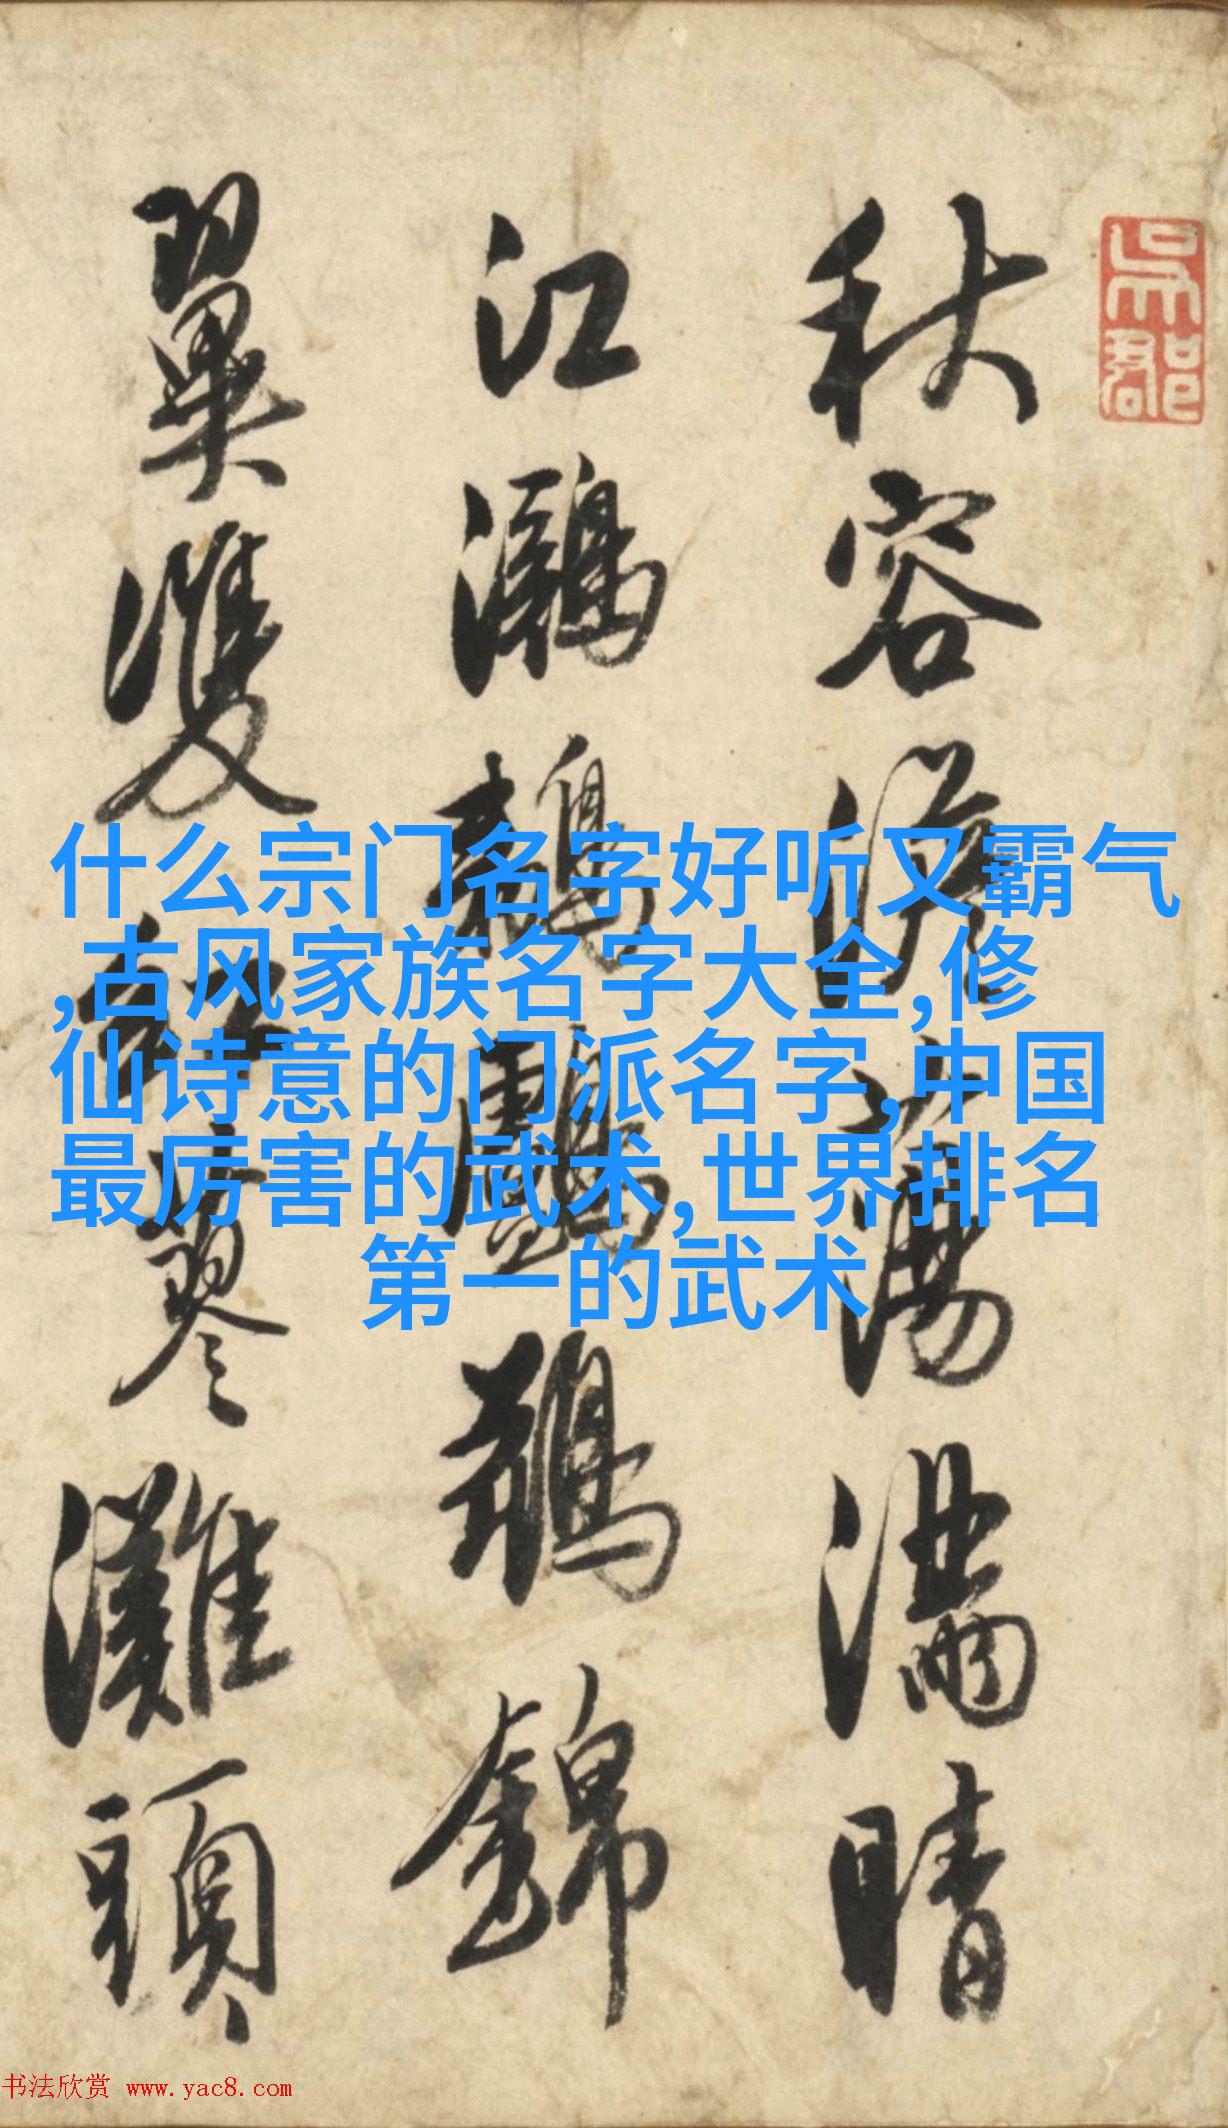 秋容淡蕩滿晴
江鸂鶒
鵜錦
翼雙
蓼灘頭
吳郡
什么宗门名字好听又霸气
,古风家族名字大全,修
仙诗意的门派名字,中国
最厉害的武术,世界排名
第一的武术
书法欣赏 www.yac8.com